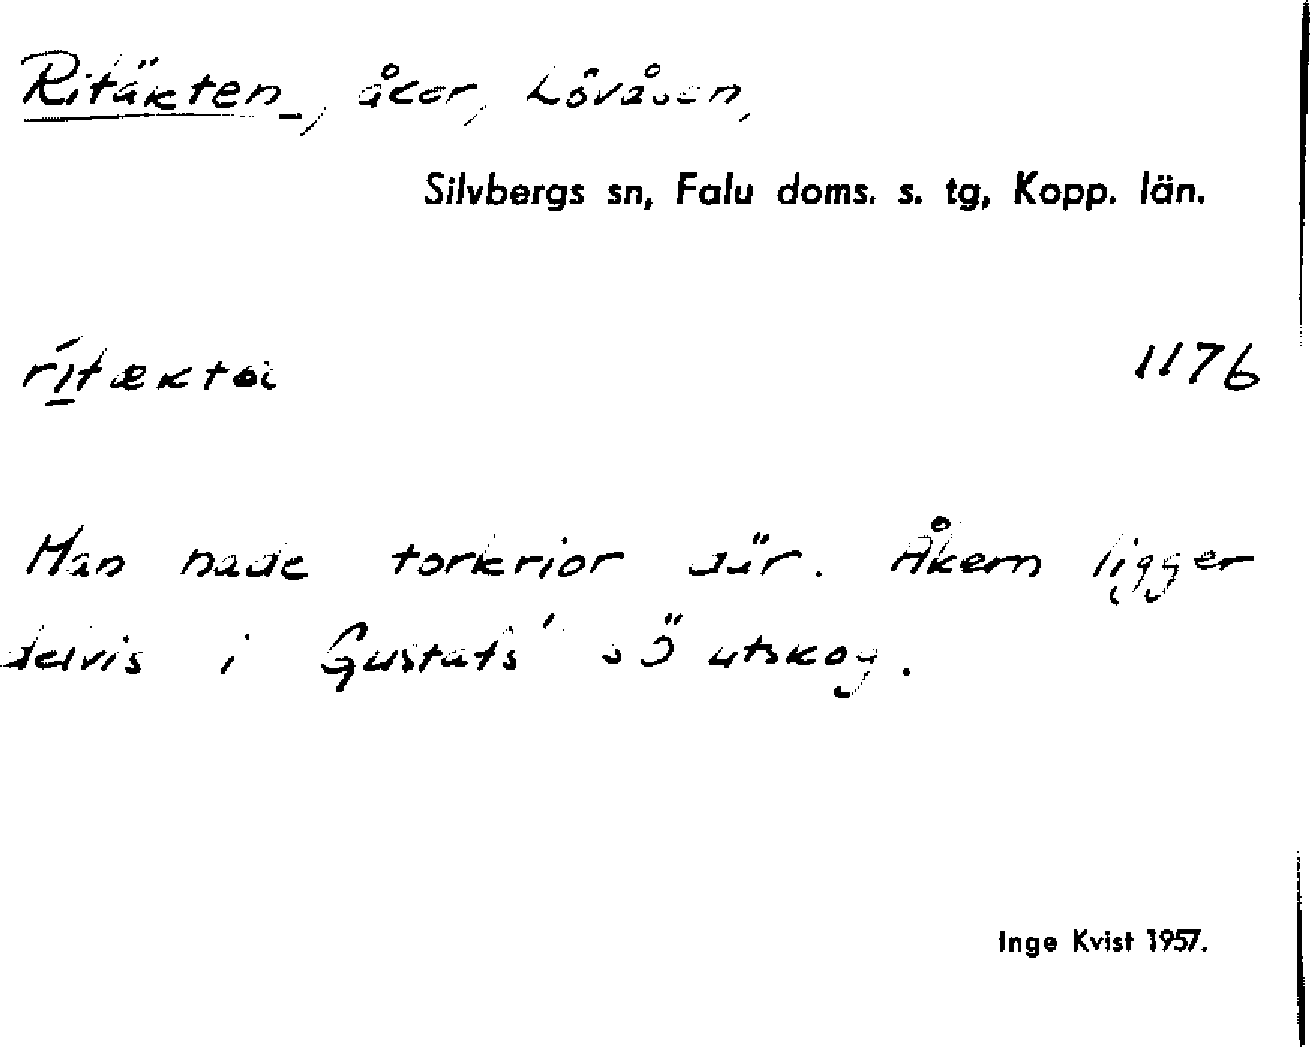 Ritäkten, åker, Lövåsen,
Silvbergs sn, Falu doms. s. tg, Kopp. län.
rítækta 1176
Man hade torkrior där. Åkern ligger
delvis i Gustafs' sö utskog.
Inge Kvist 1957.